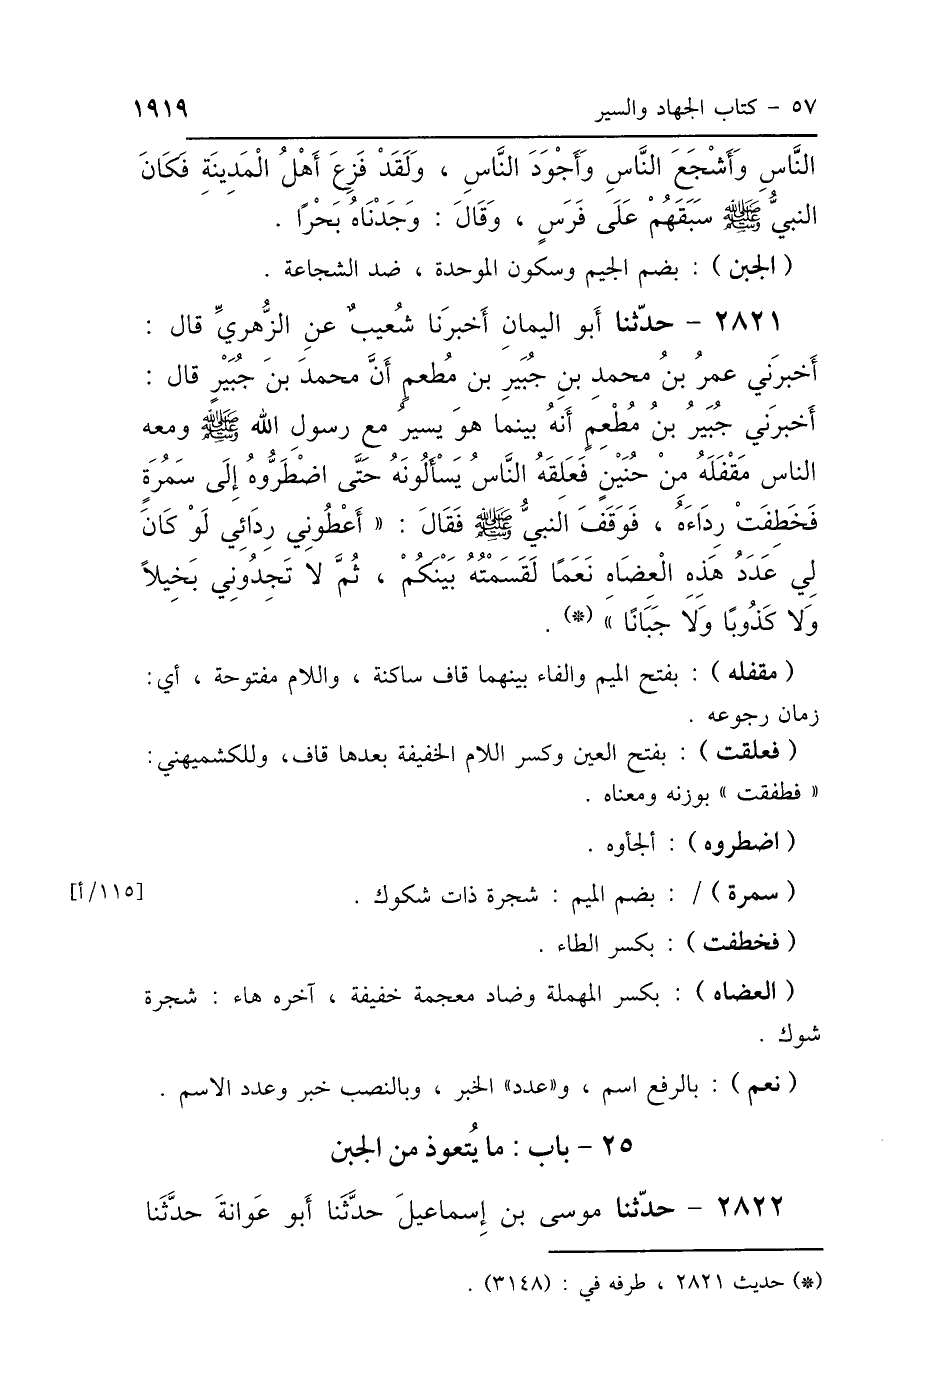 ٥٧ - كتاب الجهاد والسير ١٩١٩
النَّاسِ وَأَشْجَعَ النَّاسِ وَأَجْوَدَ النَّاسِ ، وَلَقَدْ فَزِعَ أَهْلُ الْمَدِينَةِ فَكَانَ
النبيُّ ﷺ سَبَقَهُمْ عَلَى فَرَسٍ ، وَقَالَ : وَجَدْنَاهُ بَحْرًا .
( الجبن ) : بضم الجيم وسكون الموحدة ، ضد الشجاعة .
٢٨٢١ - حدّثنا أبو اليمانِ أخبرَنا شُعيبٌ عنِ الزُّهريِّ قال :
أخبرَني عمرُ بنُ محمدِ بنِ جُبَيرِ بن مُطعمٍ أنَّ محمدَ بنَ جُبَيْرٍ قال :
أخبرَني جُبَيرُ بنُ مُطْعِمٍ أنهُ بينما هوَ يسيرُ مع رسولِ الله ﷺ ومعه
الناس مَقْفَلَهُ مِنْ حُنَيْنٍ فَعَلِقَهُ النَّاسُ يَسْأَلُونَهُ حَتَّى اضْطَرُّوهُ إِلَى سَمُرَةٍ
فَخَطِفَتْ رِدَاءَهُ ، فَوَقَفَ النبيُّ ﷺ فَقَالَ : « أَعْطُونِي رِدَائِي لَوْ كَانَ
لِي عَدَدُ هَذِهِ الْعِضَاهِ نَعَمًا لَقَسَمْتُهُ بَيْنَكُمْ ، ثُمَّ لَا تَجِدُونِي بَخِيلاً
وَلَا كَذُوبًا وَلَا جَبَانًا » (*) .
( مقفله ) : بفتح الميم والفاء بينهما قاف ساكنة ، واللام مفتوحة ، أي :
زمان رجوعه .
( فعلقت ) : بفتح العين وكسر اللام الخفيفة بعدها قاف، وللكشميهني :
« فطفقت » بوزنه ومعناه .
( اضطروه ) : ألجأوه .
( سمرة ) / : بضم الميم : شجرة ذات شكوك . [١١٥/أ]
( فخطفت ) : بكسر الطاء .
( العضاه ) : بكسر المهملة وضاد معجمة خفيفة ، آخره هاء : شجرة
شوك .
( نعم ) : بالرفع اسم ، و«عدد» الخبر ، وبالنصب خبر وعدد الاسم .
٢٥ - باب : ما يُتعوذ من الجبن
٢٨٢٢ - حدّثنا موسى بن إِسماعيلَ حدَّثَنا أبو عَوانةَ حدَّثَنا
(*) حديث ٢٨٢١ ، طرفه في : (٣١٤٨) .